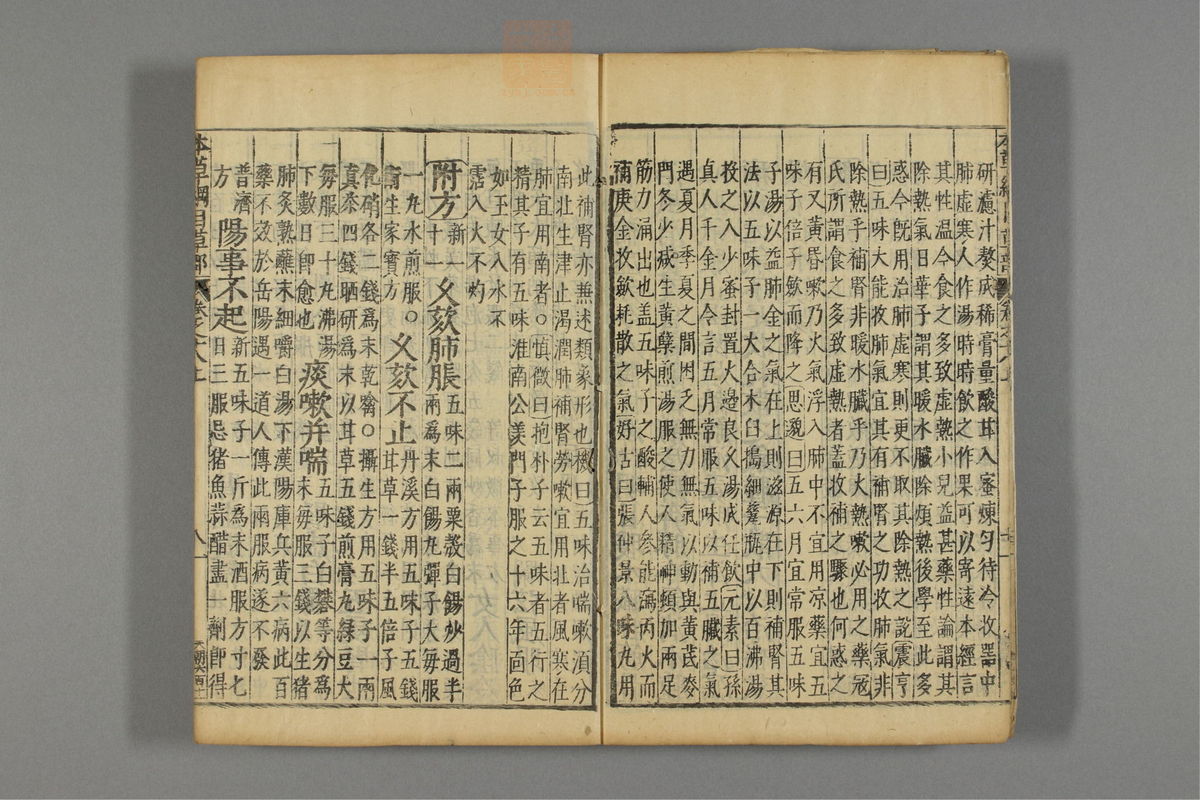 研濾汁熬成稀膏量酸甘入蜜煉勻待冷收器中
肺虛寒人作湯時時飲之作果可以寄遠本經言
其性温今食之多致虛熱小兒益甚藥性論謂其
除熱氣日華子謂其暖水臟除煩熱後學至此多
惑今旣用治肺虛寒則更不取其除熱之說震亨
曰五味大能收肺氣宜其有補腎之功收肺氣非
除熱乎補腎非暖水臟乎乃火熱嗽必用之藥冦
氏所謂食之多致虛熱者蓋收補之驟也何惑之
有又黃昏嗽乃火氣浮入肺中不宜用凉藥宜五
味子倍子斂而降之思邈曰五六月宜常服五味
子湯以益肺金之氣在上則滋源在下則補腎其
法以五味子一大合木臼搗細瓷瓶中以百沸湯
投之入少蜜封置火邊良久湯成任飲元素曰孫
真人千金月令言五月常服五味以補五臟之氣
遇夏月季夏之間困乏無力無氣以動與黃芪麥
門冬少或生黃蘗煎湯服之使人精神頓加兩足
筋力涌出也盖五味子之酸輔人參能瀉丙火而
補庚金收斂耗散之氣好古曰張仲景八味丸用
此補腎亦兼述類象形也機曰五味治喘嗽須分
南北生津止渴潤肺補腎勞嗽宜用北者風寒在
肺宜用南者○慎微曰抱朴子云五味者五行之
精其子有五味淮南公羨門子服之十六年面色
如玉女入水不
霑入火不灼
附方新一十 久欬肺脹五味二兩粟殼白餳炒過半
兩爲末白餳丸彈子大每服
一丸水煎服○ 久欬不止丹溪方用五味子五錢
甘草一錢半五倍子風
衛生家寶方
化硝各二錢爲末乾噙○攝生方用五味子一兩
真茶四錢晒研爲末以甘草五錢煎膏丸緑豆大
每服三十丸沸湯 痰嗽并喘五味子白礬等分爲
下數日卽愈也 末每服三錢以生猪
肺炙熟蘸末細嚼白湯下漢陽庫兵黃六病此百
藥不效於岳陽遇一道人傳此兩服病遂不發
普濟方 陽事不起新五味子一斤爲末酒服方寸七
日三服忌猪魚蒜醋盡一劑卽得
本草綱目草部